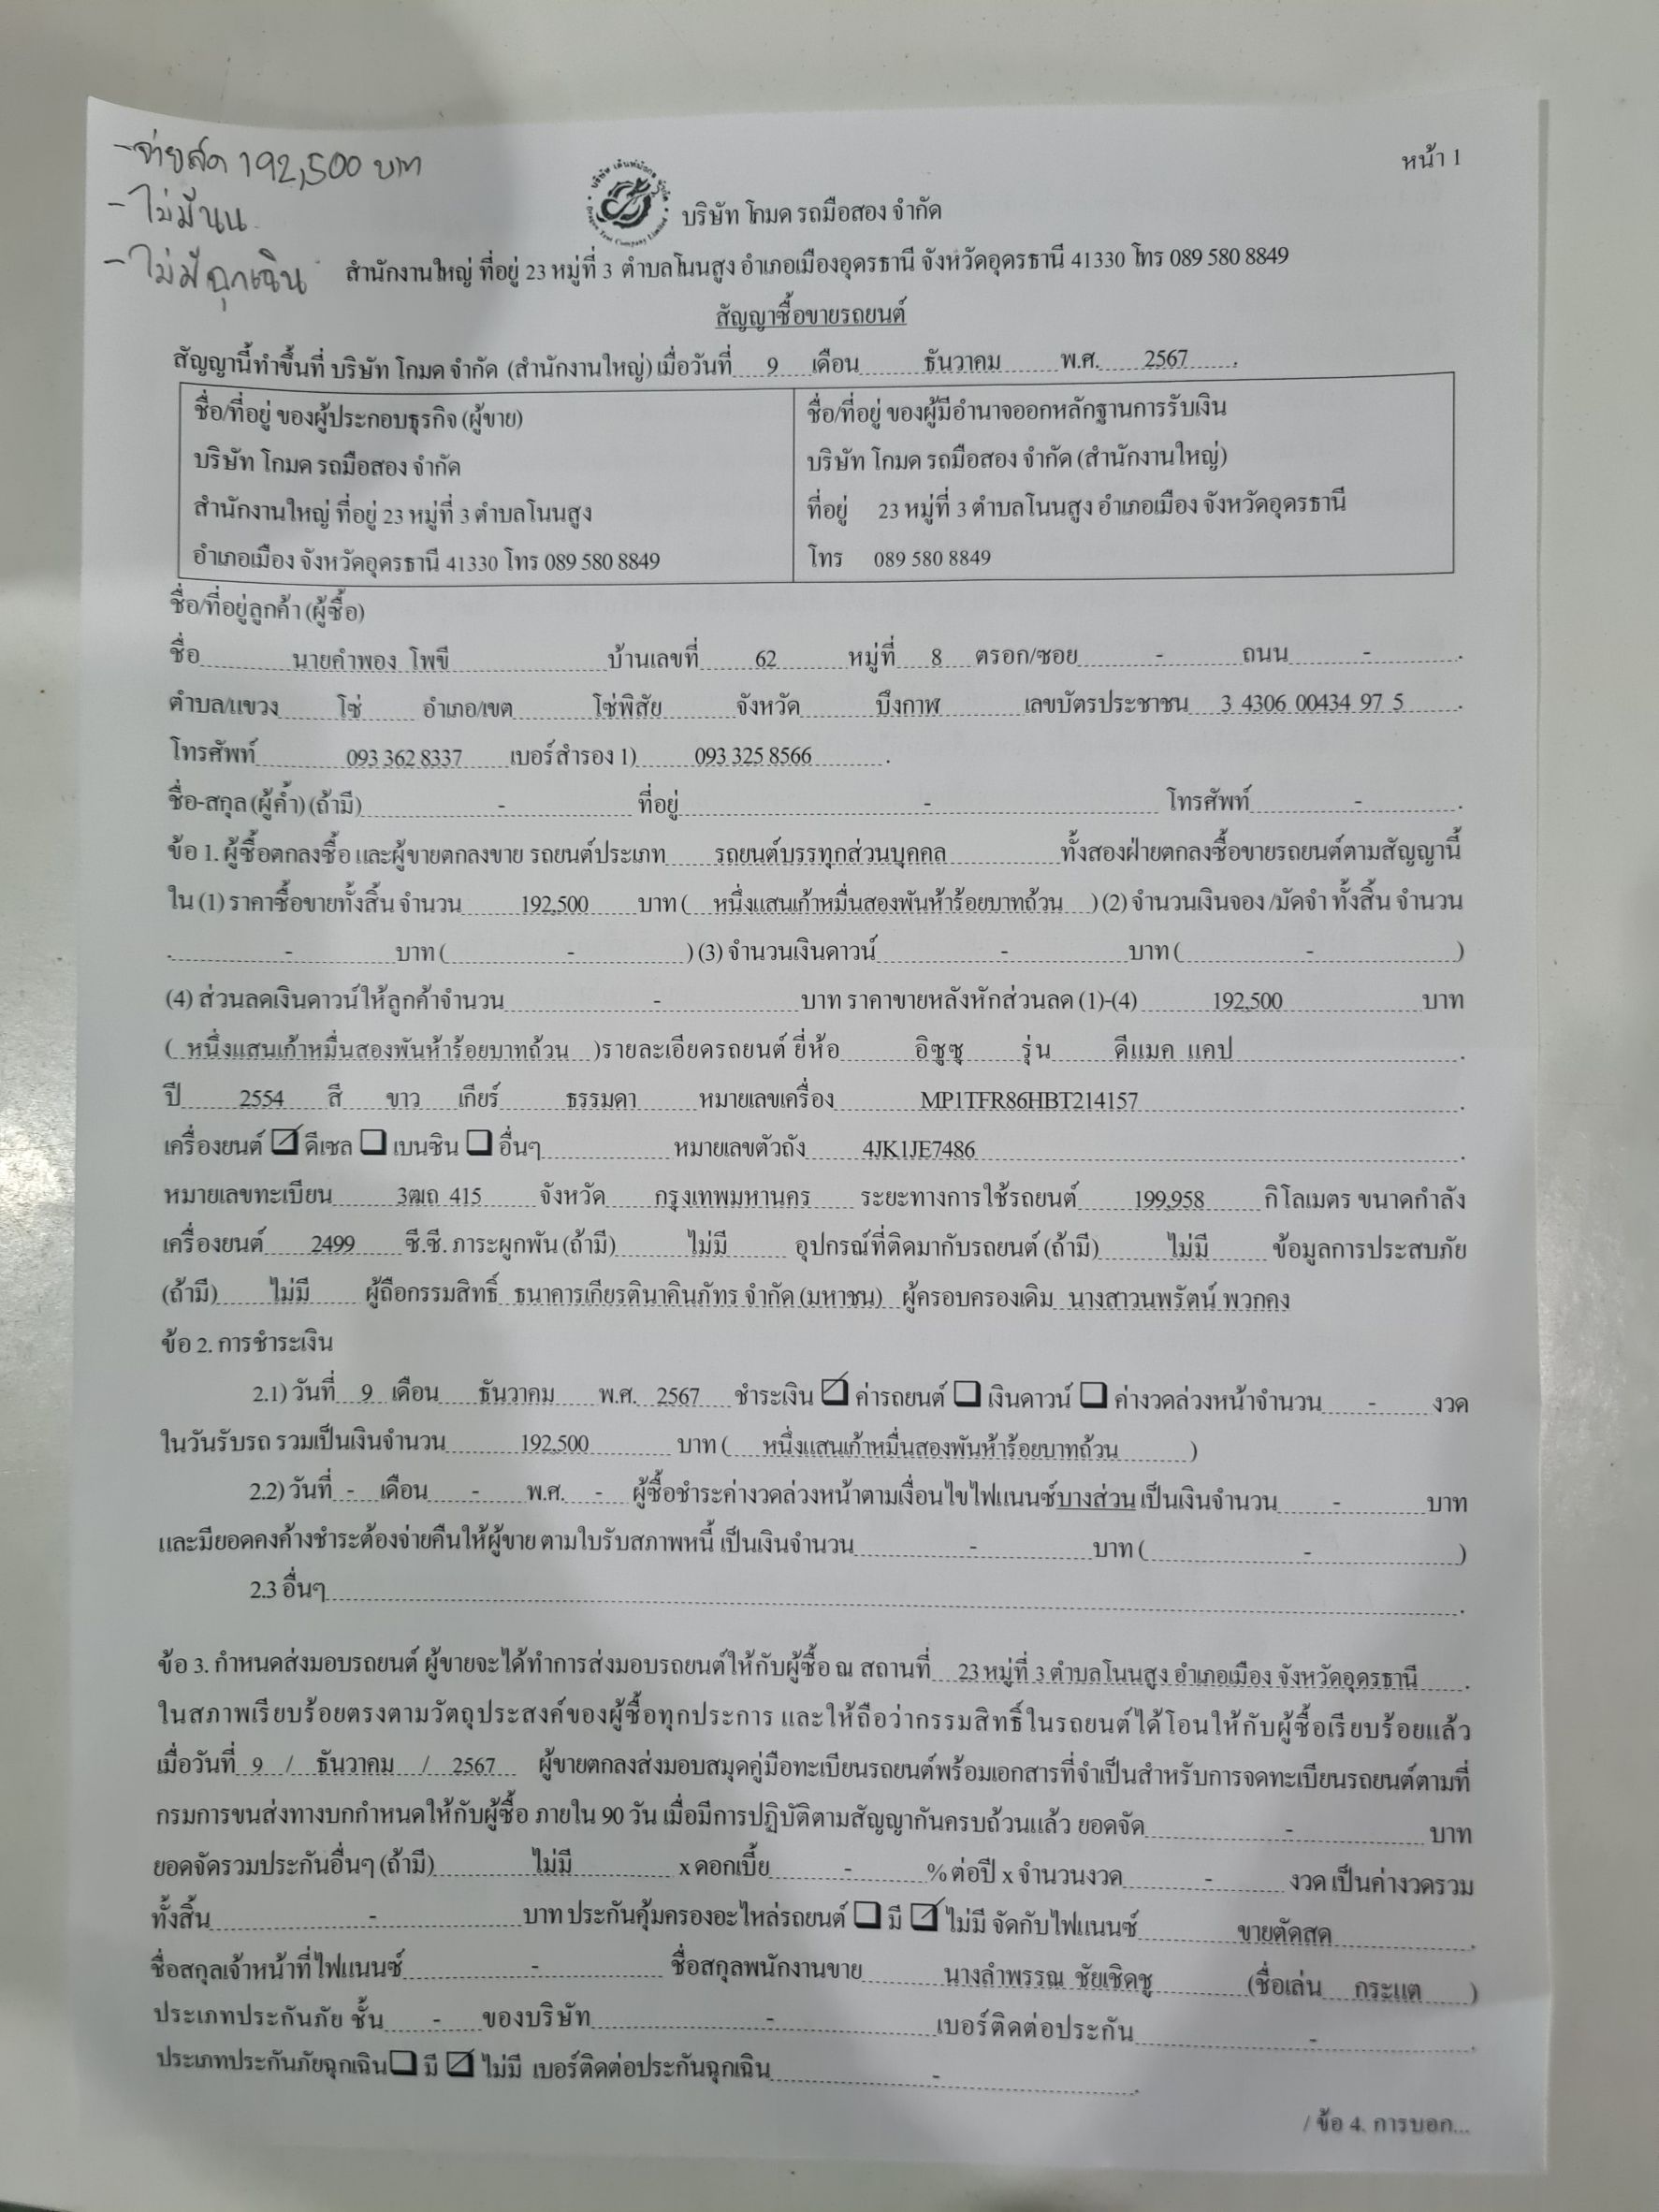 -จ่ายสด 192,500 บาท
หน้า 1
- ไม่มีนน
บริษัท โกมด รถมือสอง จำกัด
- ไม่มีฉุกเฉิน
สำนักงานใหญ่ ที่อยู่ 23 หมู่ที่ 3 ตำบลโนนสูง อำเภอเมืองอุดรธานี จังหวัดอุดรธานี 41330 โทร 089 580 8849
สัญญาซื้อขายรถยนต์
สัญญานี้ทำขึ้นที่ บริษัท โกมด จำกัด (สำนักงานใหญ่) เมื่อวันที่ 9 เดือน ธันวาคม พ.ศ. 2567
ชื่อ/ที่อยู่ ของผู้ประกอบธุรกิจ (ผู้ขาย)
บริษัท โกมด รถมือสอง จำกัด
สำนักงานใหญ่ ที่อยู่ 23 หมู่ที่ 3 ตำบลโนนสูง
อำเภอเมือง จังหวัดอุดรธานี 41330 โทร 089 580 8849
ชื่อ/ที่อยู่ ของผู้มีอำนาจออกหลักฐานการรับเงิน
บริษัท โกมด รถมือสอง จำกัด (สำนักงานใหญ่)
ที่อยู่ 23 หมู่ที่ 3 ตำบลโนนสูง อำเภอเมือง จังหวัดอุดรธานี
โทร 089 580 8849
ชื่อ/ที่อยู่ลูกค้า (ผู้ซื้อ)
ชื่อ นายคำพอง โพขี บ้านเลขที่ 62 หมู่ที่ 8 ตรอก/ซอย - ถนน -
ตำบล/แขวง โซ่ อำเภอ/เขต โซ่พิสัย จังหวัด บึงกาฬ เลขบัตรประชาชน 3 4306 00434 97 5
โทรศัพท์ 093 362 8337 เบอร์สำรอง 1) 093 325 8566
ชื่อ-สกุล (ผู้ค้ำ) (ถ้ามี) - ที่อยู่ - โทรศัพท์ -
ข้อ 1. ผู้ซื้อตกลงซื้อ และผู้ขายตกลงขาย รถยนต์ประเภท รถยนต์บรรทุกส่วนบุคคล ทั้งสองฝ่ายตกลงซื้อขายรถยนต์ตามสัญญานี้
ใน (1) ราคาซื้อขายทั้งสิ้น จำนวน 192,500 บาท ( หนึ่งแสนเก้าหมื่นสองพันห้าร้อยบาทถ้วน ) (2) จำนวนเงินจอง /มัดจำ ทั้งสิ้น จำนวน
- บาท ( - ) (3) จำนวนเงินดาวน์ - บาท ( - )
(4) ส่วนลดเงินดาวน์ให้ลูกค้าจำนวน - บาท ราคาขายหลังหักส่วนลด (1)-(4) 192,500 บาท
( หนึ่งแสนเก้าหมื่นสองพันห้าร้อยบาทถ้วน )รายละเอียดรถยนต์ ยี่ห้อ อิซูซุ รุ่น ดีแมค แคป
ปี 2554 สี ขาว เกียร์ ธรรมดา หมายเลขเครื่อง MP1TFR86HBT214157
เครื่องยนต์ ☑ ดีเซล ☐ เบนซิน ☐ อื่นๆ หมายเลขตัวถัง 4JK1JE7486
หมายเลขทะเบียน 3ฒถ 415 จังหวัด กรุงเทพมหานคร ระยะทางการใช้รถยนต์ 199,958 กิโลเมตร ขนาดกำลัง
เครื่องยนต์ 2499 ซี.ซี. ภาระผูกพัน (ถ้ามี) ไม่มี อุปกรณ์ที่ติดมากับรถยนต์ (ถ้ามี) ไม่มี ข้อมูลการประสบภัย
(ถ้ามี) ไม่มี ผู้ถือกรรมสิทธิ์ ธนาคารเกียรตินาคินภัทร จำกัด (มหาชน) ผู้ครอบครองเดิม นางสาวนพรัตน์ พวกคง
ข้อ 2. การชำระเงิน
2.1) วันที่ 9 เดือน ธันวาคม พ.ศ. 2567 ชำระเงิน ☑ ค่ารถยนต์ ☐ เงินดาวน์ ☐ ค่างวดล่วงหน้าจำนวน - งวด
ในวันรับรถ รวมเป็นเงินจำนวน 192,500 บาท ( หนึ่งแสนเก้าหมื่นสองพันห้าร้อยบาทถ้วน )
2.2) วันที่ - เดือน - พ.ศ. - ผู้ซื้อชำระค่างวดล่วงหน้าตามเงื่อนไขไฟแนนซ์บางส่วน เป็นเงินจำนวน - บาท
และมียอดคงค้างชำระต้องจ่ายคืนให้ผู้ขาย ตามใบรับสภาพหนี้ เป็นเงินจำนวน - บาท ( - )
2.3 อื่นๆ
ข้อ 3. กำหนดส่งมอบรถยนต์ ผู้ขายจะได้ทำการส่งมอบรถยนต์ให้กับผู้ซื้อ ณ สถานที่ 23 หมู่ที่ 3 ตำบลโนนสูง อำเภอเมือง จังหวัดอุดรธานี
ในสภาพเรียบร้อยตรงตามวัตถุประสงค์ของผู้ซื้อทุกประการ และให้ถือว่ากรรมสิทธิ์ในรถยนต์ได้โอนให้กับผู้ซื้อเรียบร้อยแล้ว
เมื่อวันที่ 9 / ธันวาคม / 2567 ผู้ขายตกลงส่งมอบสมุดคู่มือทะเบียนรถยนต์พร้อมเอกสารที่จำเป็นสำหรับการจดทะเบียนรถยนต์ตามที่
กรมการขนส่งทางบกกำหนดให้กับผู้ซื้อ ภายใน 90 วัน เมื่อมีการปฏิบัติตามสัญญากันครบถ้วนแล้ว ยอดจัด - บาท
ยอดจัดรวมประกันอื่นๆ (ถ้ามี) ไม่มี x ดอกเบี้ย - % ต่อปี x จำนวนงวด - งวด เป็นค่างวดรวม
ทั้งสิ้น - บาท ประกันคุ้มครองอะไหล่รถยนต์ ☐ มี ☑ ไม่มี จัดกับไฟแนนซ์ ขายตัดสด
ชื่อสกุลเจ้าหน้าที่ไฟแนนซ์ - ชื่อสกุลพนักงานขาย นางลำพรรณ ชัยเชิดชู (ชื่อเล่น กระแต )
ประเภทประกันภัย ชั้น - ของบริษัท - เบอร์ติดต่อประกัน -
ประเภทประกันภัยฉุกเฉิน ☐ มี ☑ ไม่มี เบอร์ติดต่อประกันฉุกเฉิน -
/ ข้อ 4. การบอก...